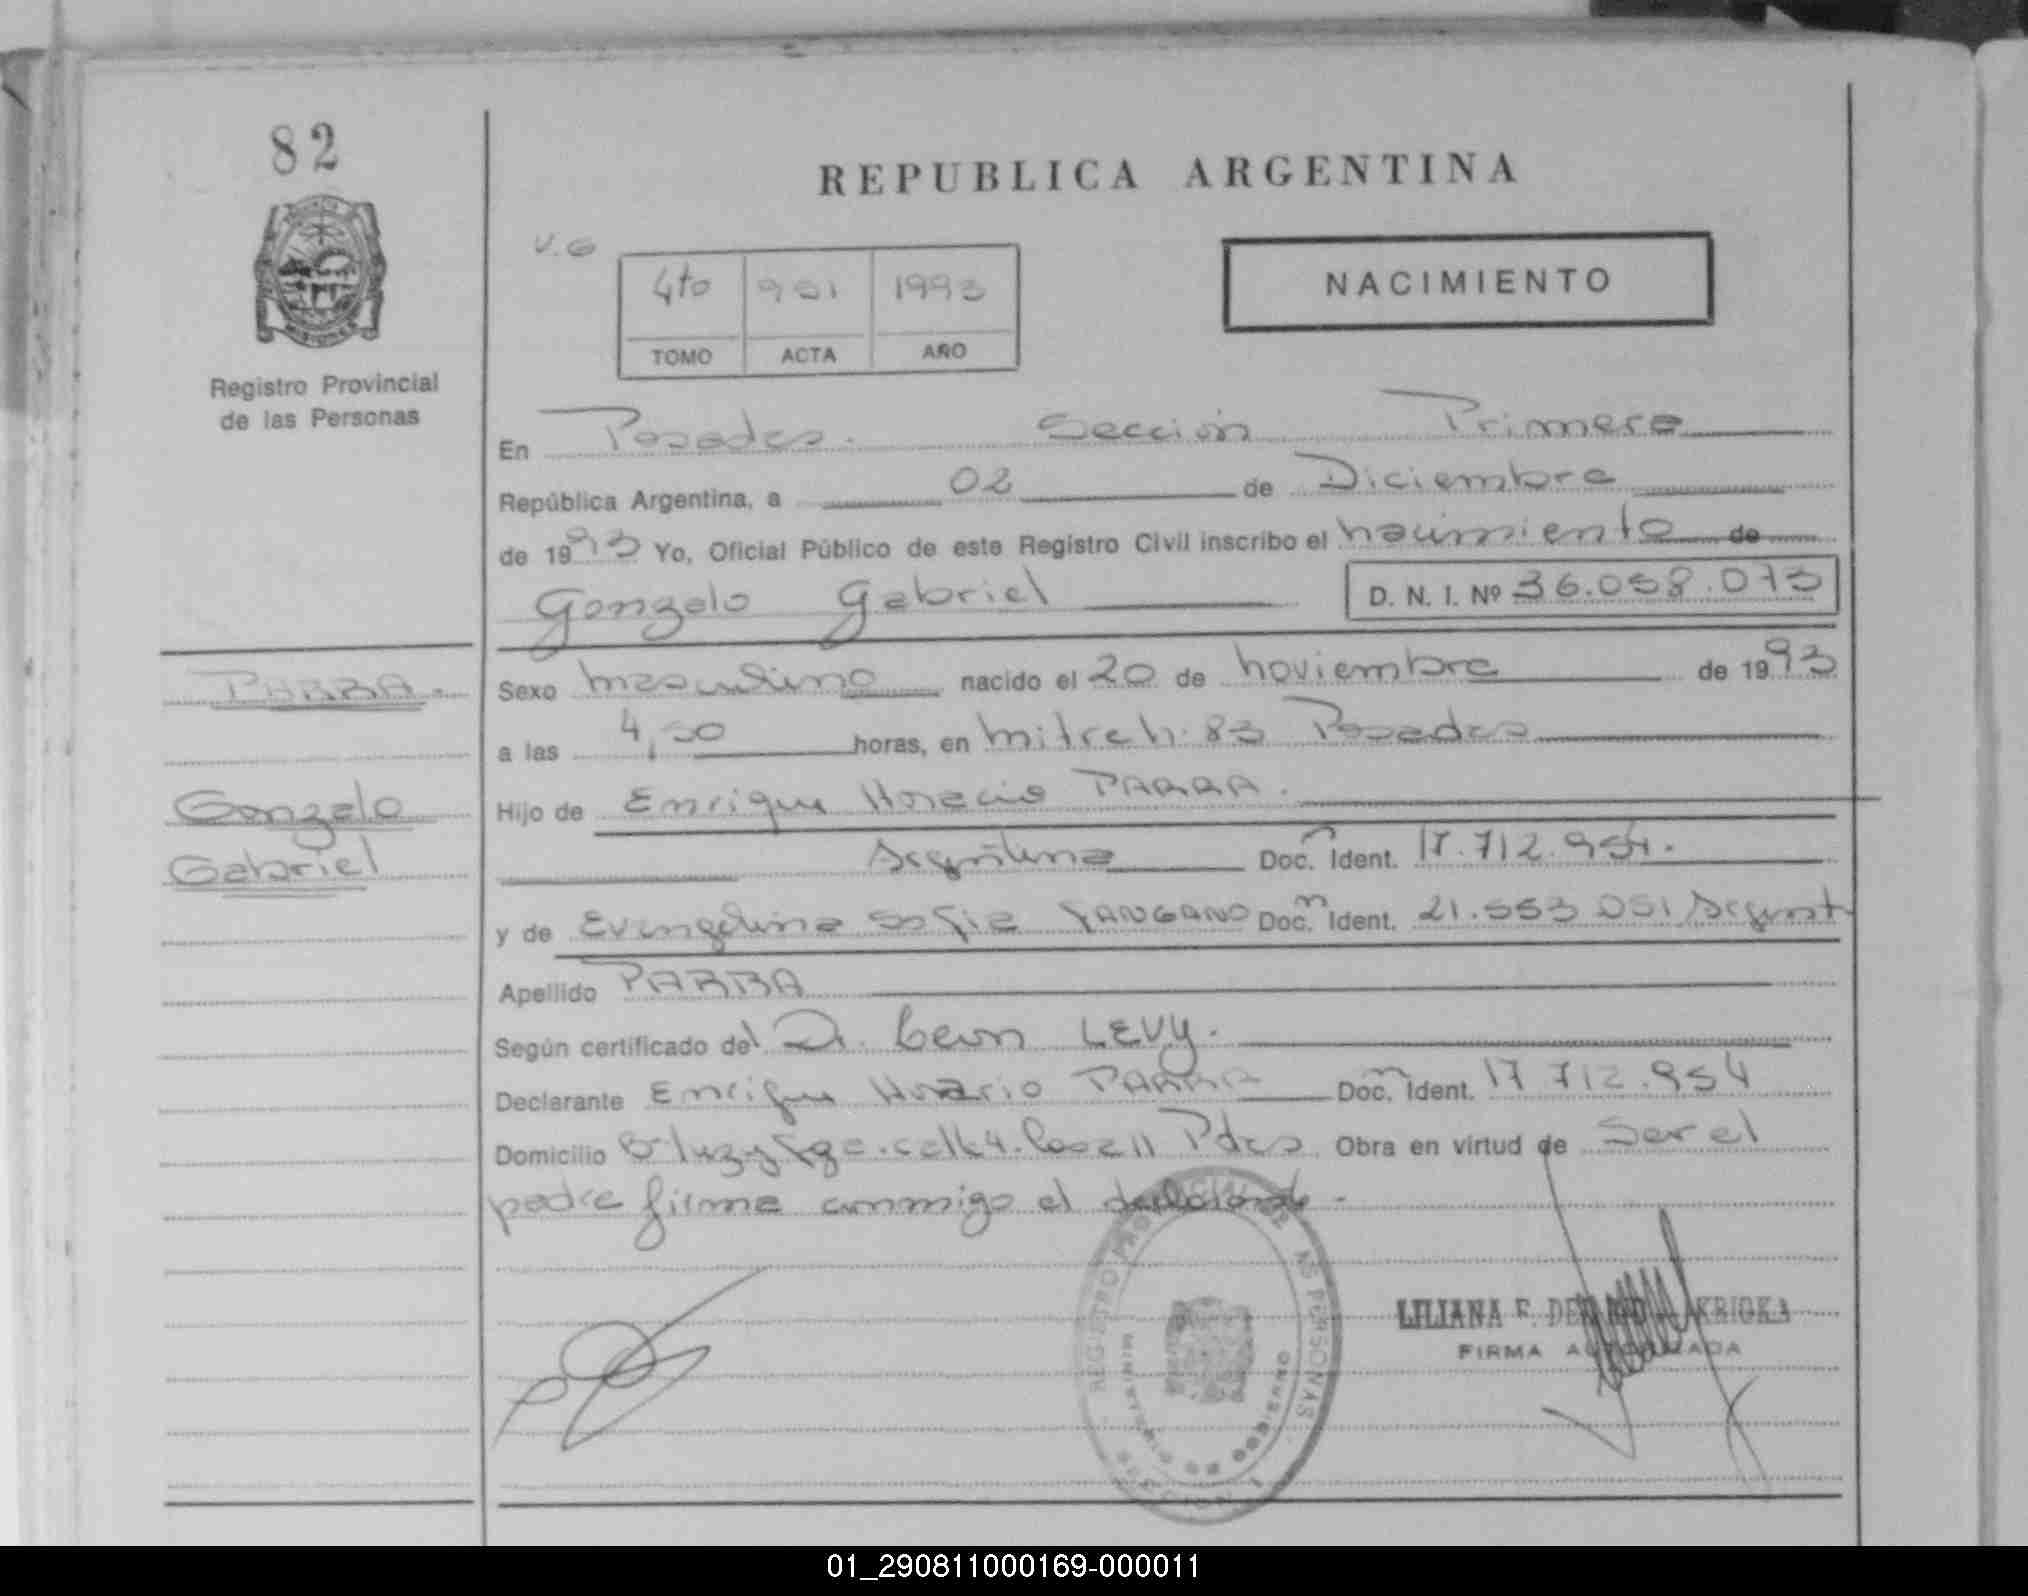 82
REPUBLICA ARGENTINA
V.G
NACIMIENTO
4to 951 1993
TOMO ACTA AÑO
Registro Provincial
de las Personas
En Posadas. Sección Primera
República Argentina, a 02 de Diciembre
de 1993 Yo, Oficial Público de este Registro Civil inscribo el nacimiento de
Gonzalo Gabriel D. N. I. Nº 36.058.073
PARRA.
Gonzalo
Gabriel
Sexo masculino nacido el 20 de noviembre de 1993
a las 4,50 horas, en mitre 83 Posadas
Hijo de Enrique Horacio PARRA.
Argentina Doc. Ident. 17.712.954.
y de Evangelina Sofia Doc. Ident. 21.553.051 Argent
Apellido PARRA
Según certificado del Dr. Leon LEVY.
Declarante Enrique Horacio PARRA Doc. Ident. 17 712.954
Domicilio Pdas Obra en virtud de Ser el
padre firma conmigo el declarante.
REGISTRO PROVINCIAL DE PERSONAS
MINISTERIO DE GOBIERNO
LILIANA F.
FIRMA AUTORIZADA
01_290811000169-000011